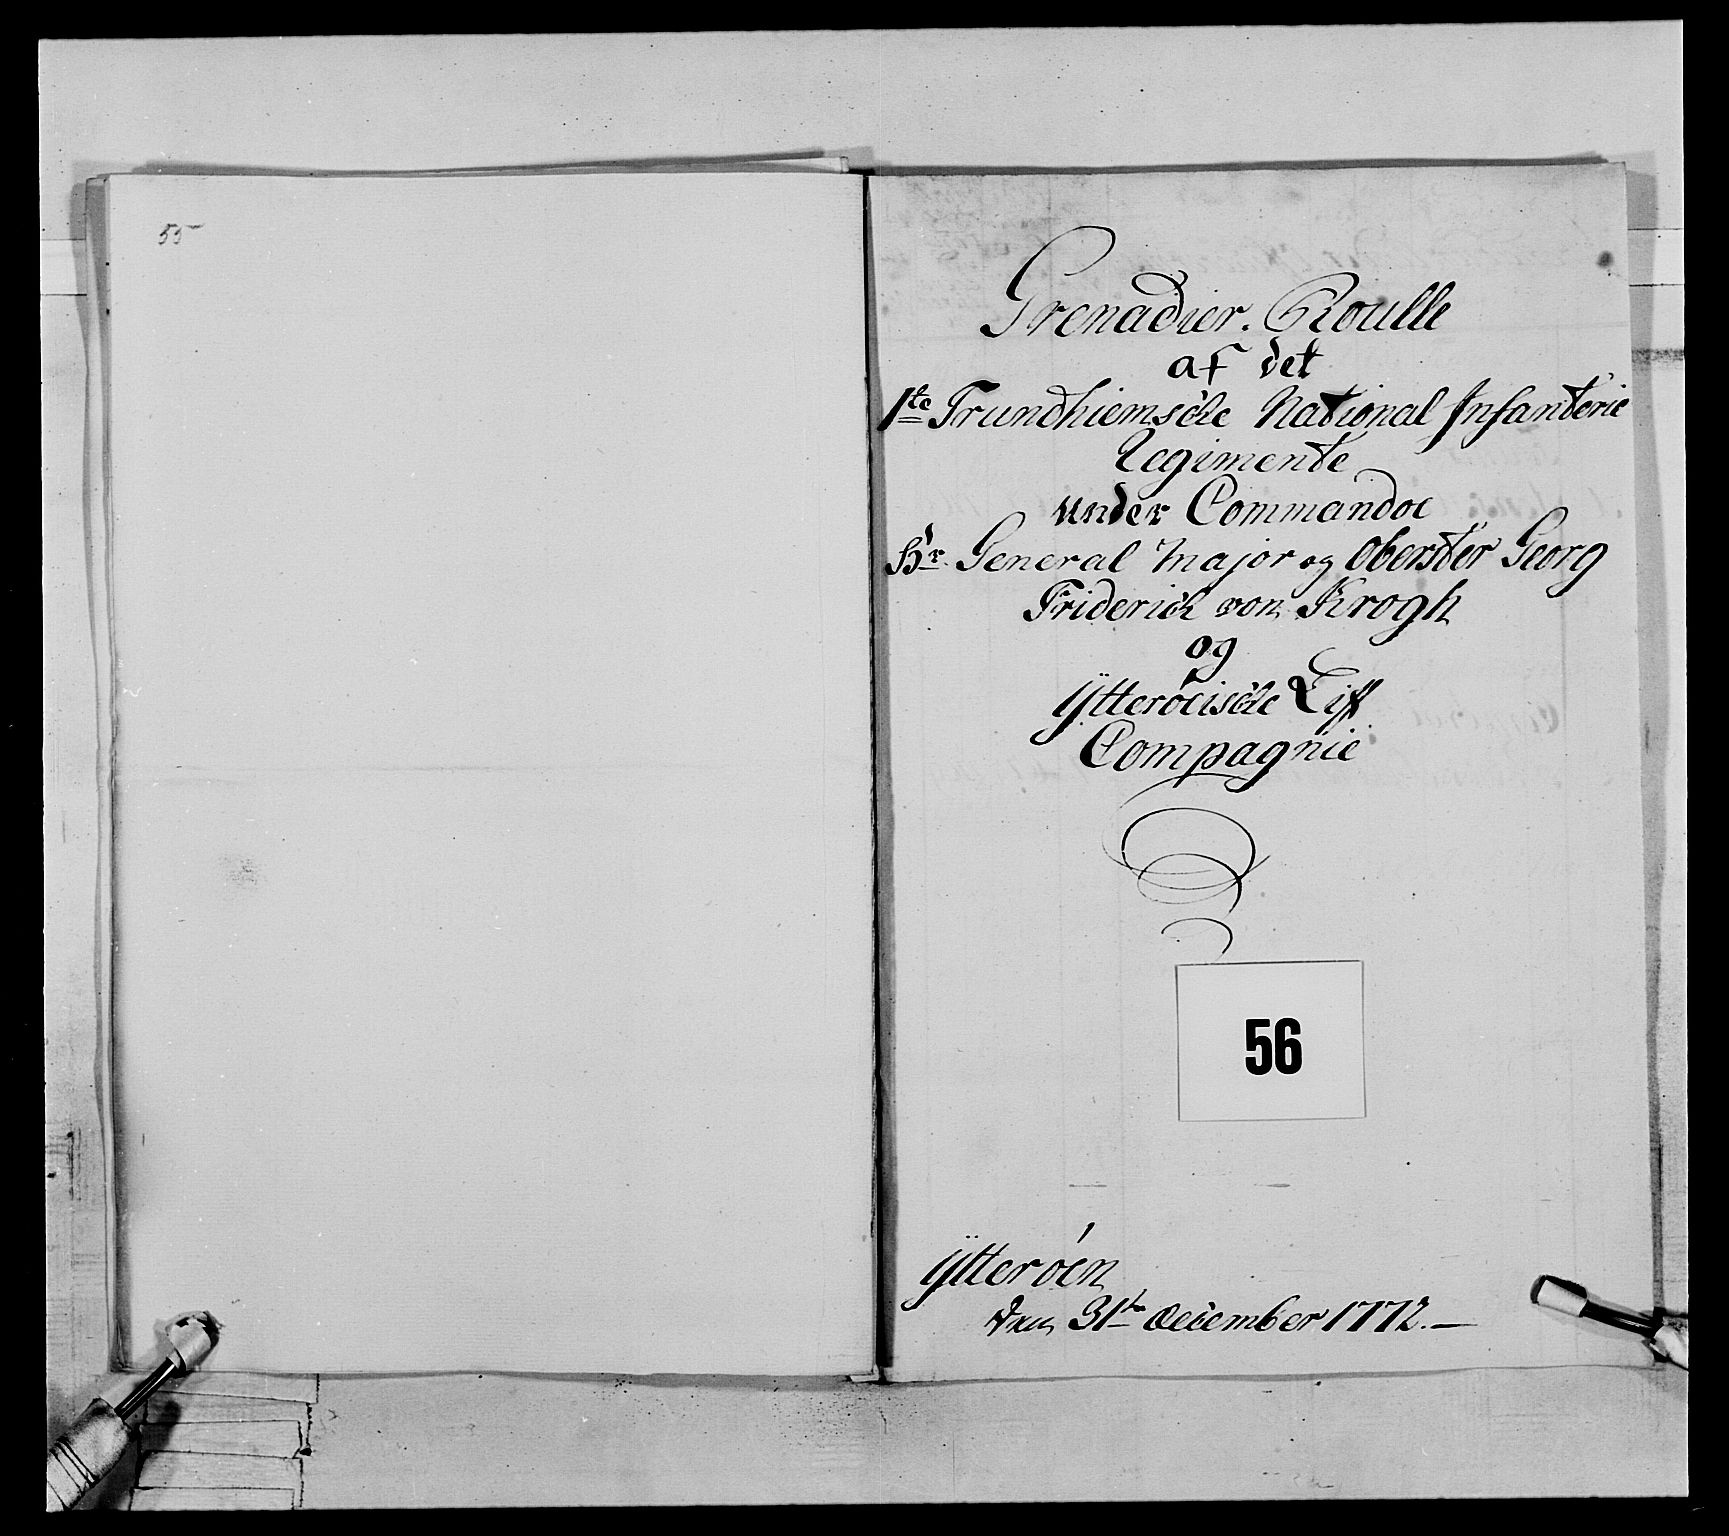 55
Grenadier. Roulle
af det
1te Trundhiemsche National Infanterie
Regimente
under Commandoe
Hr. General Major og Oberster Georg
Friderich von Krogh
og
Ytteröeische Liff
Compagnie
56
Ytteröen
den 31te December 1772.